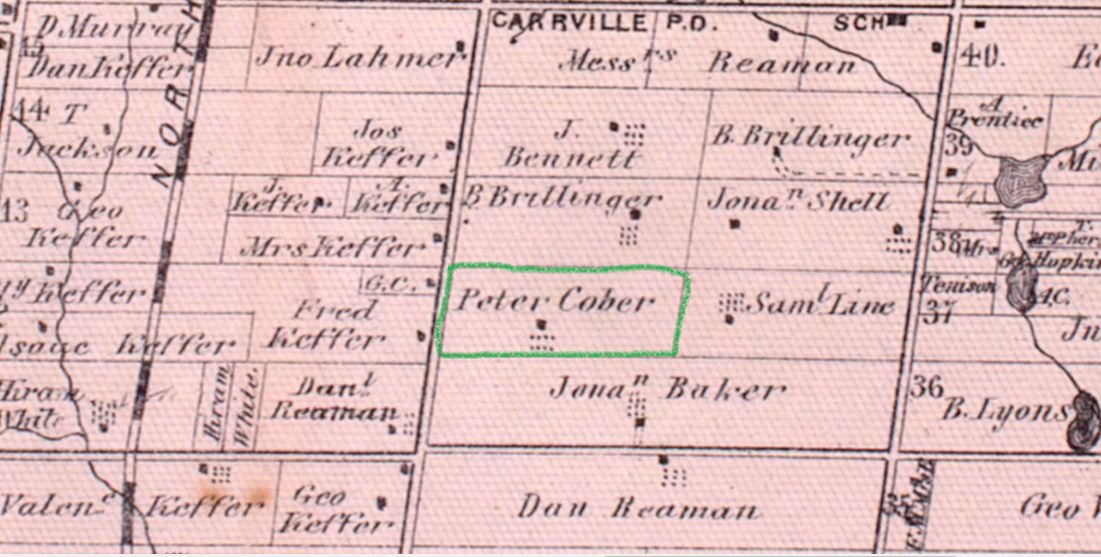 D. Murray
Dan Keffer
Jno Lahmer
CARRVILLE P.O.
SCH
Messrs Reaman
40.
NORTH
44 T
Jackson
Jos
Keffer
J.
Bennett
B. Brillinger
A
Prentice
39
43 Geo
Keffer
J.
Keffer
A.
Keffer
Mrs Keffer
B Brillinger
Jonan Shell
38 Mrs
Tenison
37
Hopkin
Keffer
G.C.
Fred
Keffer
Peter Cober
Saml Line
Isaac Keffer
Hiram
White
Hiram
White.
Danl
Reaman
Jonan Baker
36
B. Lyons
Valene Keffer
Geo
Keffer
Dan Reaman
Geo